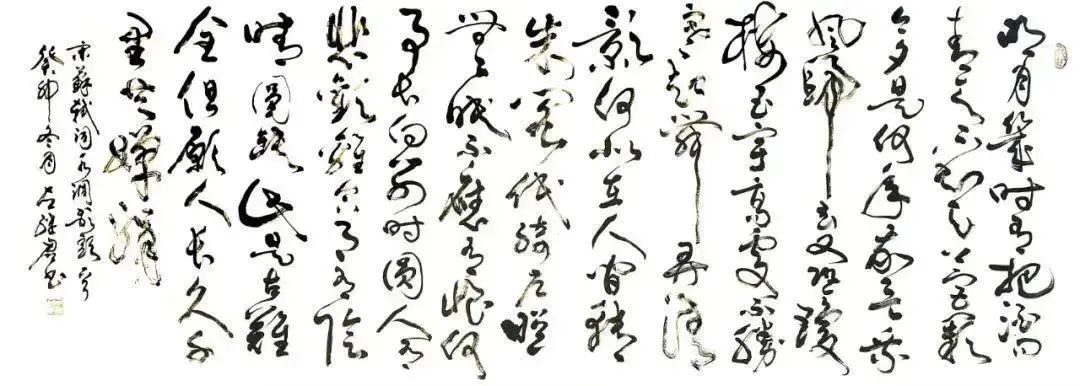 明月幾时有把酒问
青天不知天上宫阙
今夕是何年我欲乘
风归去又恐瓊
楼玉宇高处不勝
寒起舞弄清
影何似在人间转
朱阁低绮户照
無眠不應有恨何
事长向别时圆人有
悲歡離合月有陰
晴圆缺此是古難
全但願人长久千
里共嬋娟
宋蘇軾詞水调歌頭
癸卯冬月书